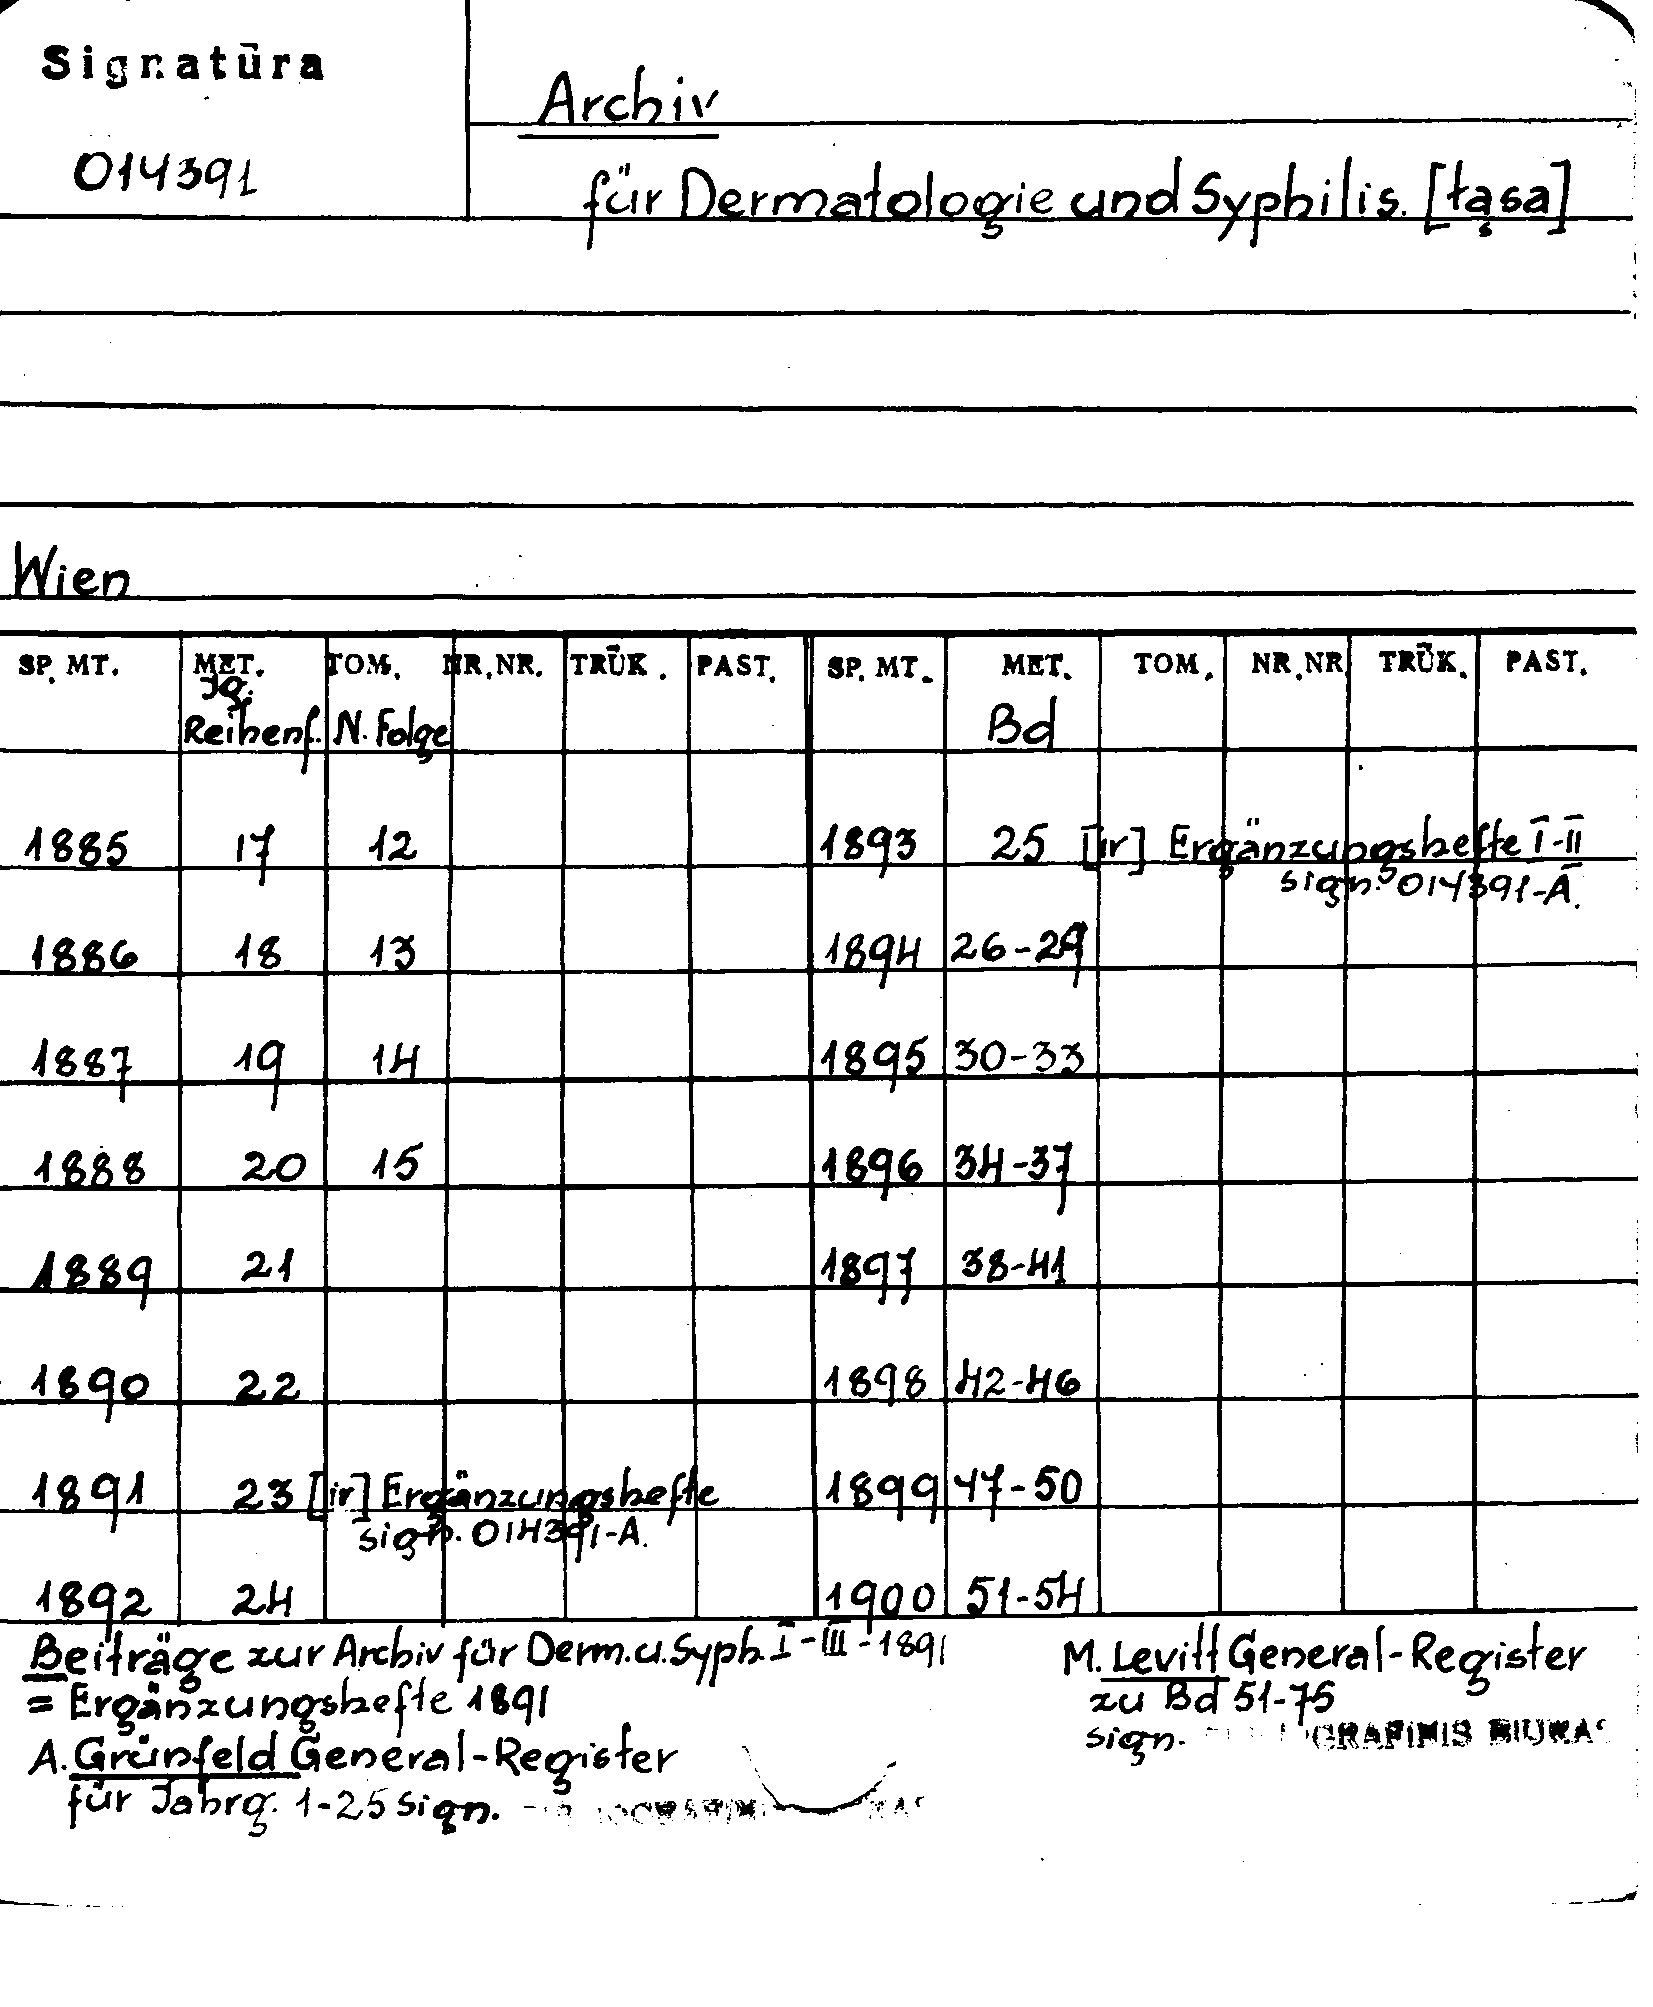 Signatūra
014391
Archiv
für Dermatologie und Syphilis. [tąsa]
Wien
SP. MT. MET. TOM. NR. NR. TRŪK. PAST. SP. MT. MET. TOM. NR. NR. TRŪK. PAST.
Jg.
Reihenf. N. Folge Bd
1885 17 12 1893 25 [ir] Ergänzungshefte I-II
sign. 014391-A.
1886 18 13 1894 26-29
1887 19 14 1895 30-33
1888 20 15 1896 34-37
1889 21 1897 38-41
1890 22 1898 42-46
1891 23 [ir] Ergänzungshefte 1899 47-50
sign. 014391-A.
1892 24 1900 51-54
Beiträge zur Archiv für Derm. u. Syph. I-III-1891
= Ergänzungshefte 1891
A. Grünfeld General-Register
für Jahrg. 1-25 sign.
M. Levitt General-Register
zu Bd 51-75
sign. BIURAS